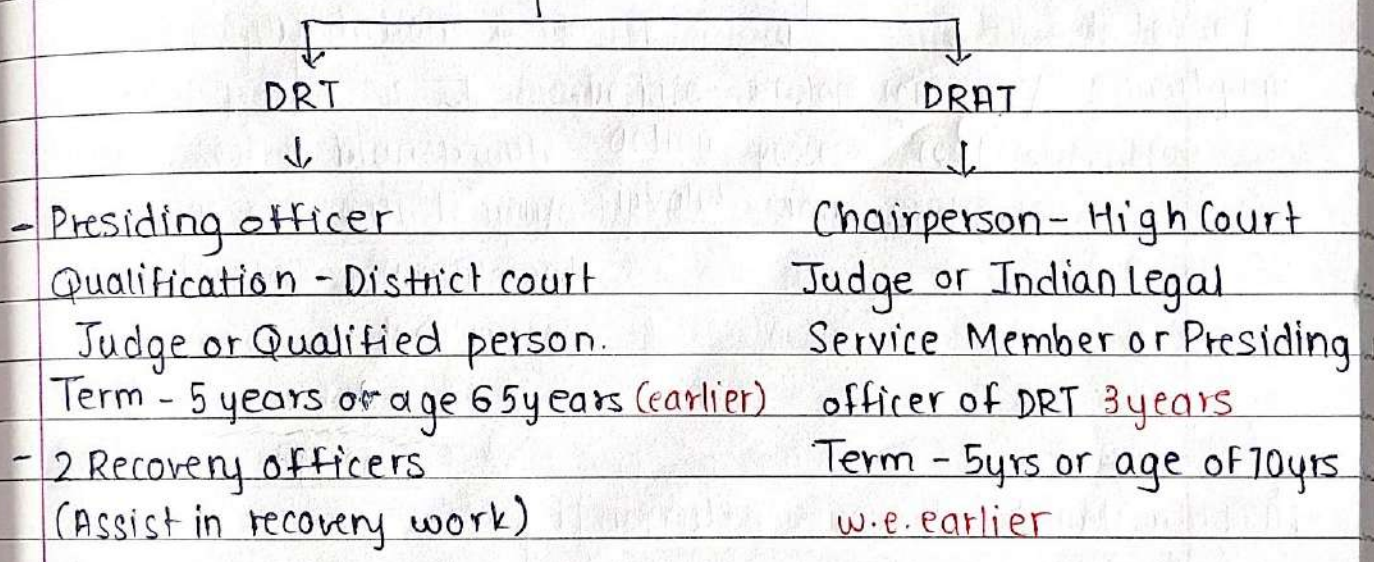 DRT
DRAT
- Presiding officer
Qualification - District court
Judge or Qualified person.
Term - 5 years or age 65years (earlier)
- 2 Recovery officers
(Assist in recovery work)
Chairperson - High Court
Judge or Indian Legal
Service Member or Presiding
officer of DRT 3years
Term - 5yrs or age of 70yrs
w.e.earlier